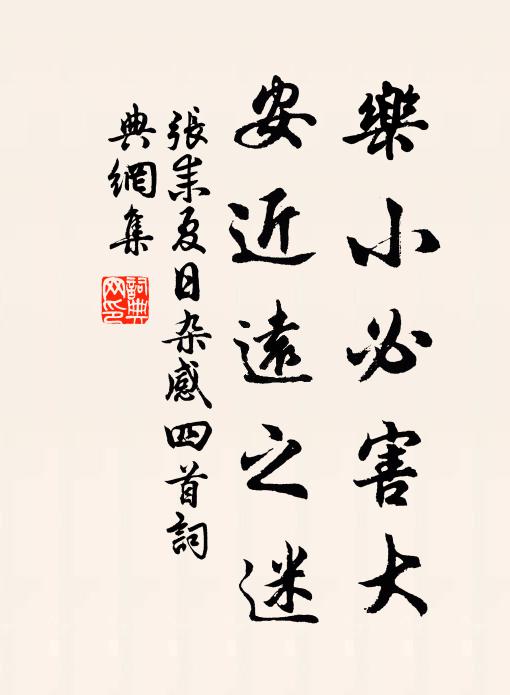 樂小必害大
安近遠之迷
張耒夏日杂感四首詞
典網集
詞典
网印